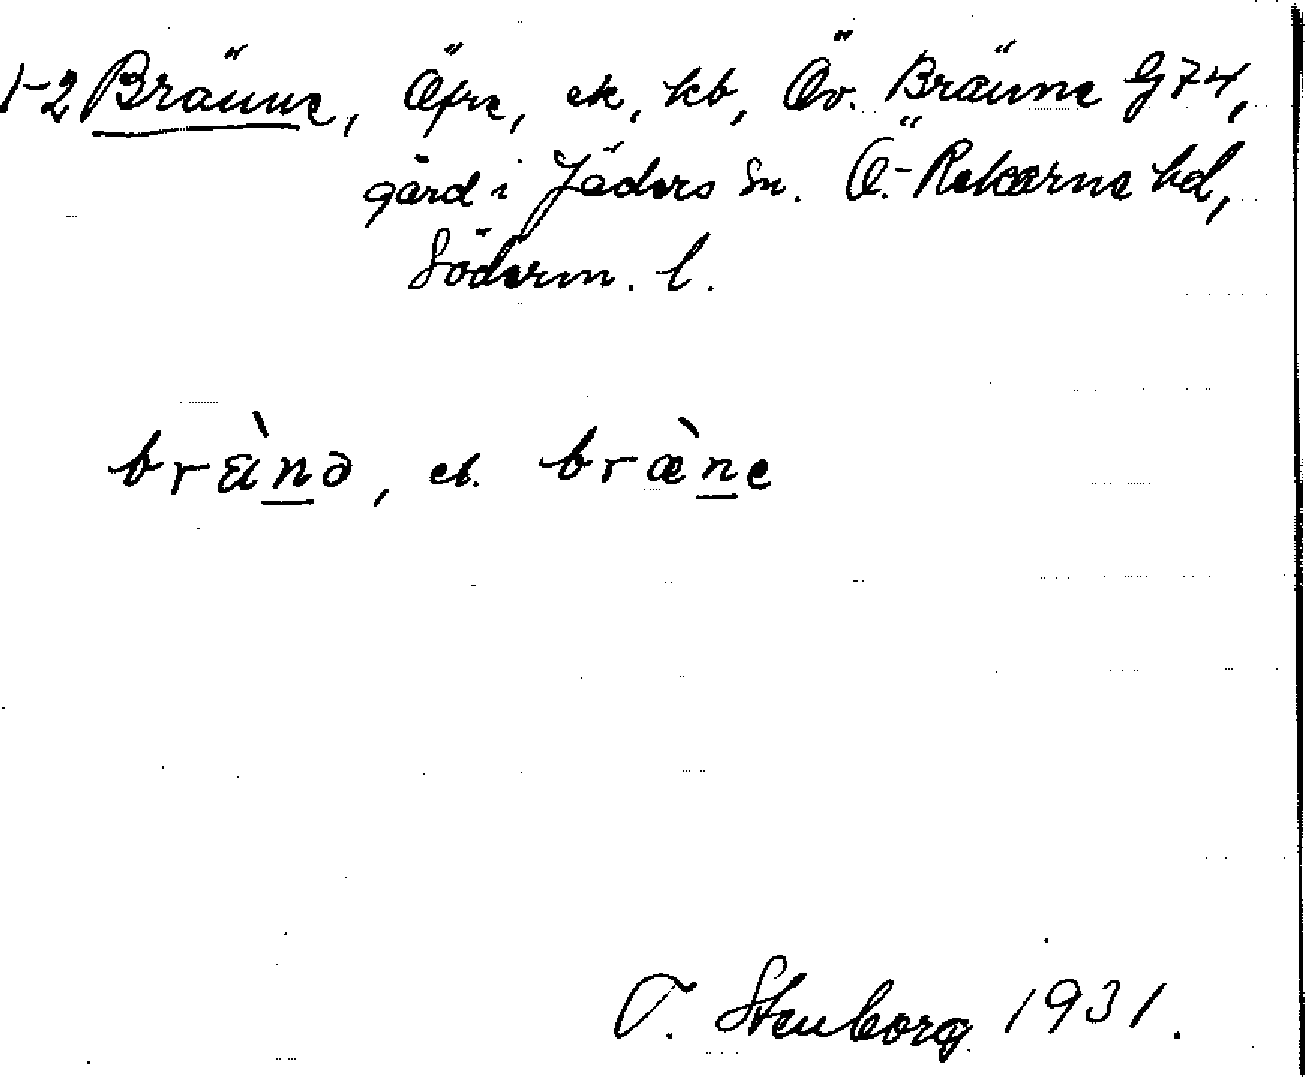 1-2 Bränne, Öfre, ek, kb, Öv. Bränne G74,
gård i Jäders sn. Ö.-Rekarne hd,
Söderm. l.
brä̀nə, el. bræ̀ne
O. Stenborg 1931.